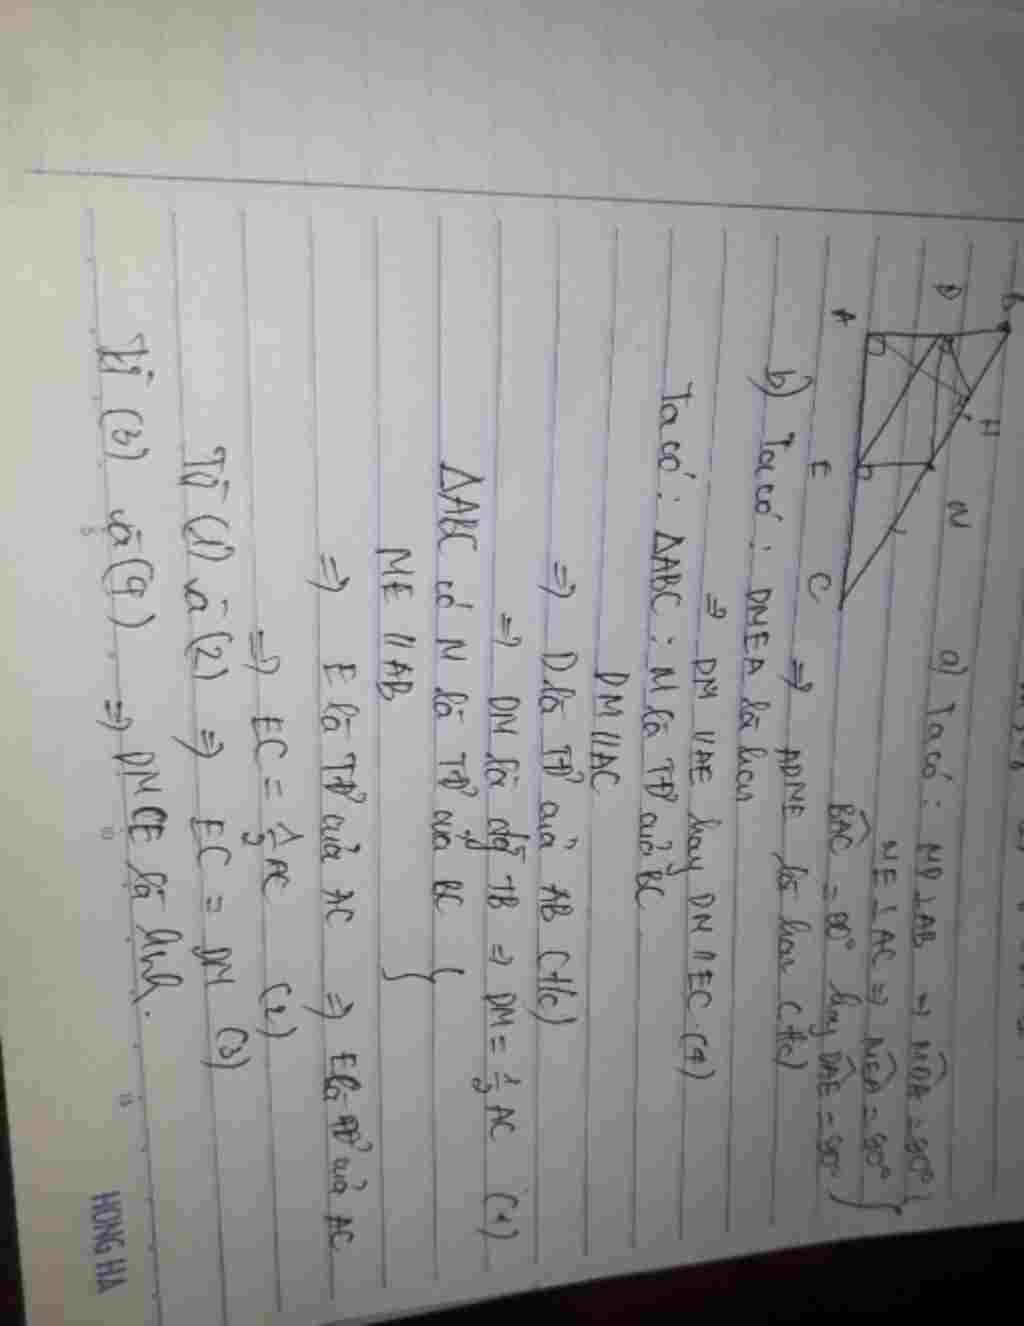 B
D
H
A
N
E
C
a) Ta có: MD ⊥ AB ⇒ MDA = 90°
ME ⊥ AC ⇒ MEA = 90°
BAC = 90° hay DAE = 90°
⇒ ADME là hcn (đhc)
b) Ta có: DMEA là hcn
⇒ DM // AE hay DM // EC (4)
Ta có: ΔABC: M là TĐ của BC
DM // AC
⇒ D là TĐ của AB (đlc)
⇒ DM là đg TB ⇒ DM = 1/2 AC (1)
ΔABC có M là TĐ của BC
ME // AB
⇒ E là TĐ của AC ⇒ E là TĐ của AC
⇒ EC = 1/2 AC (2)
Từ (1) và (2) ⇒ EC = DM (3)
Từ (3) và (4) ⇒ DMCE là hbh.
5
10
15
HONG HA